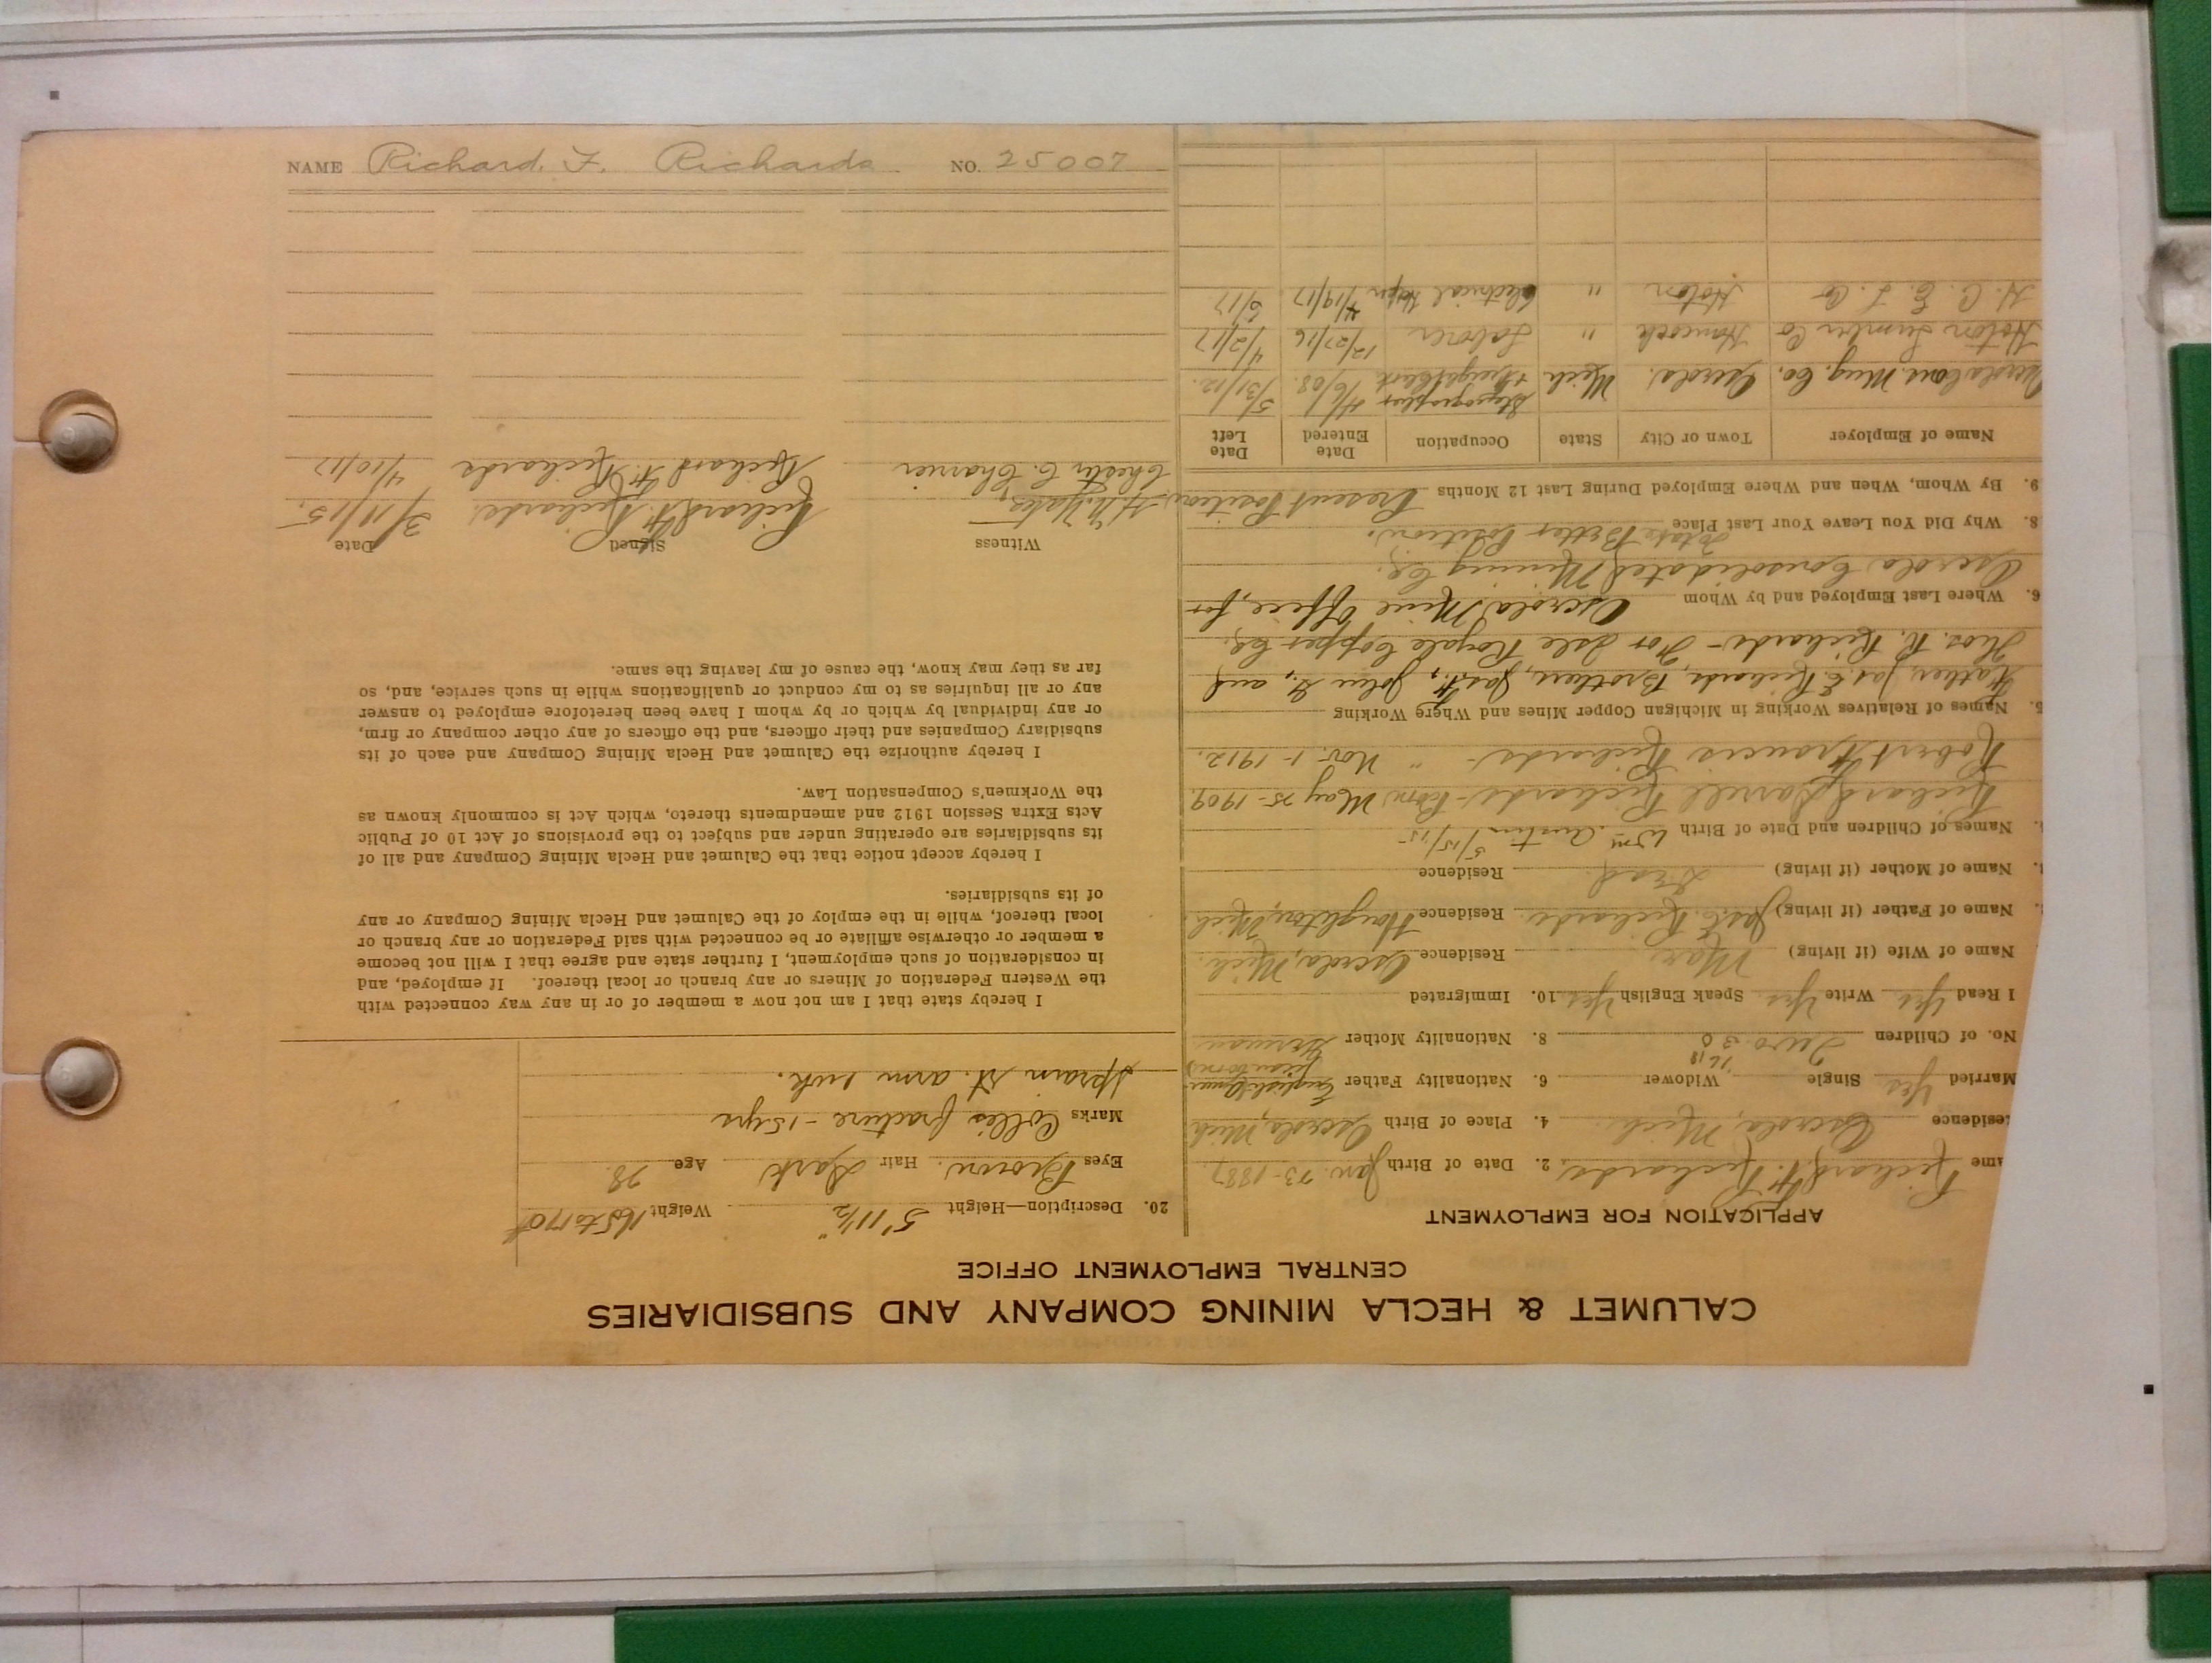 NAME Richard. F. Richards NO. 25007
CALUMET & HECLA MINING COMPANY AND SUBSIDIARIES
CENTRAL EMPLOYMENT OFFICE
APPLICATION FOR EMPLOYMENT
ame Richard F. Richards. 2. Date of Birth Jan. 23-1887.
esidence Osceola, Mich. 4. Place of Birth Osceola, Mich
Married Yes Single Widower 6. Nationality Father English
No. of Children Two 3 8. Nationality Mother German
I Read Yes Write Yes Speak English Yes 10. Immigrated
Name of Wife (if living) Residence Osceola, Mich.
Name of Father (if living) Jas. E. Richards. Residence Houghton, Mich
Name of Mother (if living) Dead. Residence
Names of Children and Date of Birth Wm. Austin 5/15/15
Richard Darrell Richards - Born May 25-1909.
Robert Francis Richards - " Nov. 1-1912.
5. Names of Relatives Working in Michigan Copper Mines and Where Working
Father, Jas. E. Richards, Brothers, Jas. F., John G., and
Thos. R. Richards - For Isle Royale Copper Co.
6. Where Last Employed and by Whom Osceola Mine Office, for
Osceola Consolidated Mining Co.
8. Why Did You Leave Your Last Place To take Better Position.
9. By Whom, When and Where Employed During Last 12 Months Present Position
Name of Employer Town or City State Occupation Date Entered Date Left
Osceola Cons. Ming. Co. Osceola. Mich Stenographer 4/6/08. 5/31/12.
Hoton Lumber Co Hancock " Laborer 12/27/16 4/2/17
H. C. E. L. Co Hoton " Electrical 4/19/17 6/17
20. Description—Height 5' 11 1/2" Weight 165 to 170#
Eyes Brown. Hair Dark Age 28.
Marks Colles fracture - 15 yrs
Sprain rt. arm
I hereby state that I am not now a member of or in any way connected with
the Western Federation of Miners or any branch or local thereof. If employed, and
in consideration of such employment, I further state and agree that I will not become
a member or otherwise affiliate or be connected with said Federation or any branch or
local thereof, while in the employ of the Calumet and Hecla Mining Company or any
of its subsidiaries.
I hereby accept notice that the Calumet and Hecla Mining Company and all of
its subsidiaries are operating under and subject to the provisions of Act 10 of Public
Acts Extra Session 1912 and amendments thereto, which Act is commonly known as
the Workmen's Compensation Law.
I hereby authorize the Calumet and Hecla Mining Company and each of its
subsidiary Companies and their officers, and the officers of any other company or firm,
or any individual by which or by whom I have been heretofore employed to answer
any or all inquiries as to my conduct or qualifications while in such service, and, so
far as they may know, the cause of my leaving the same.
Witness Signed Date
Richard F. Richards. 3/11/15.
Chester C. Richard F. Richards 4/10/17